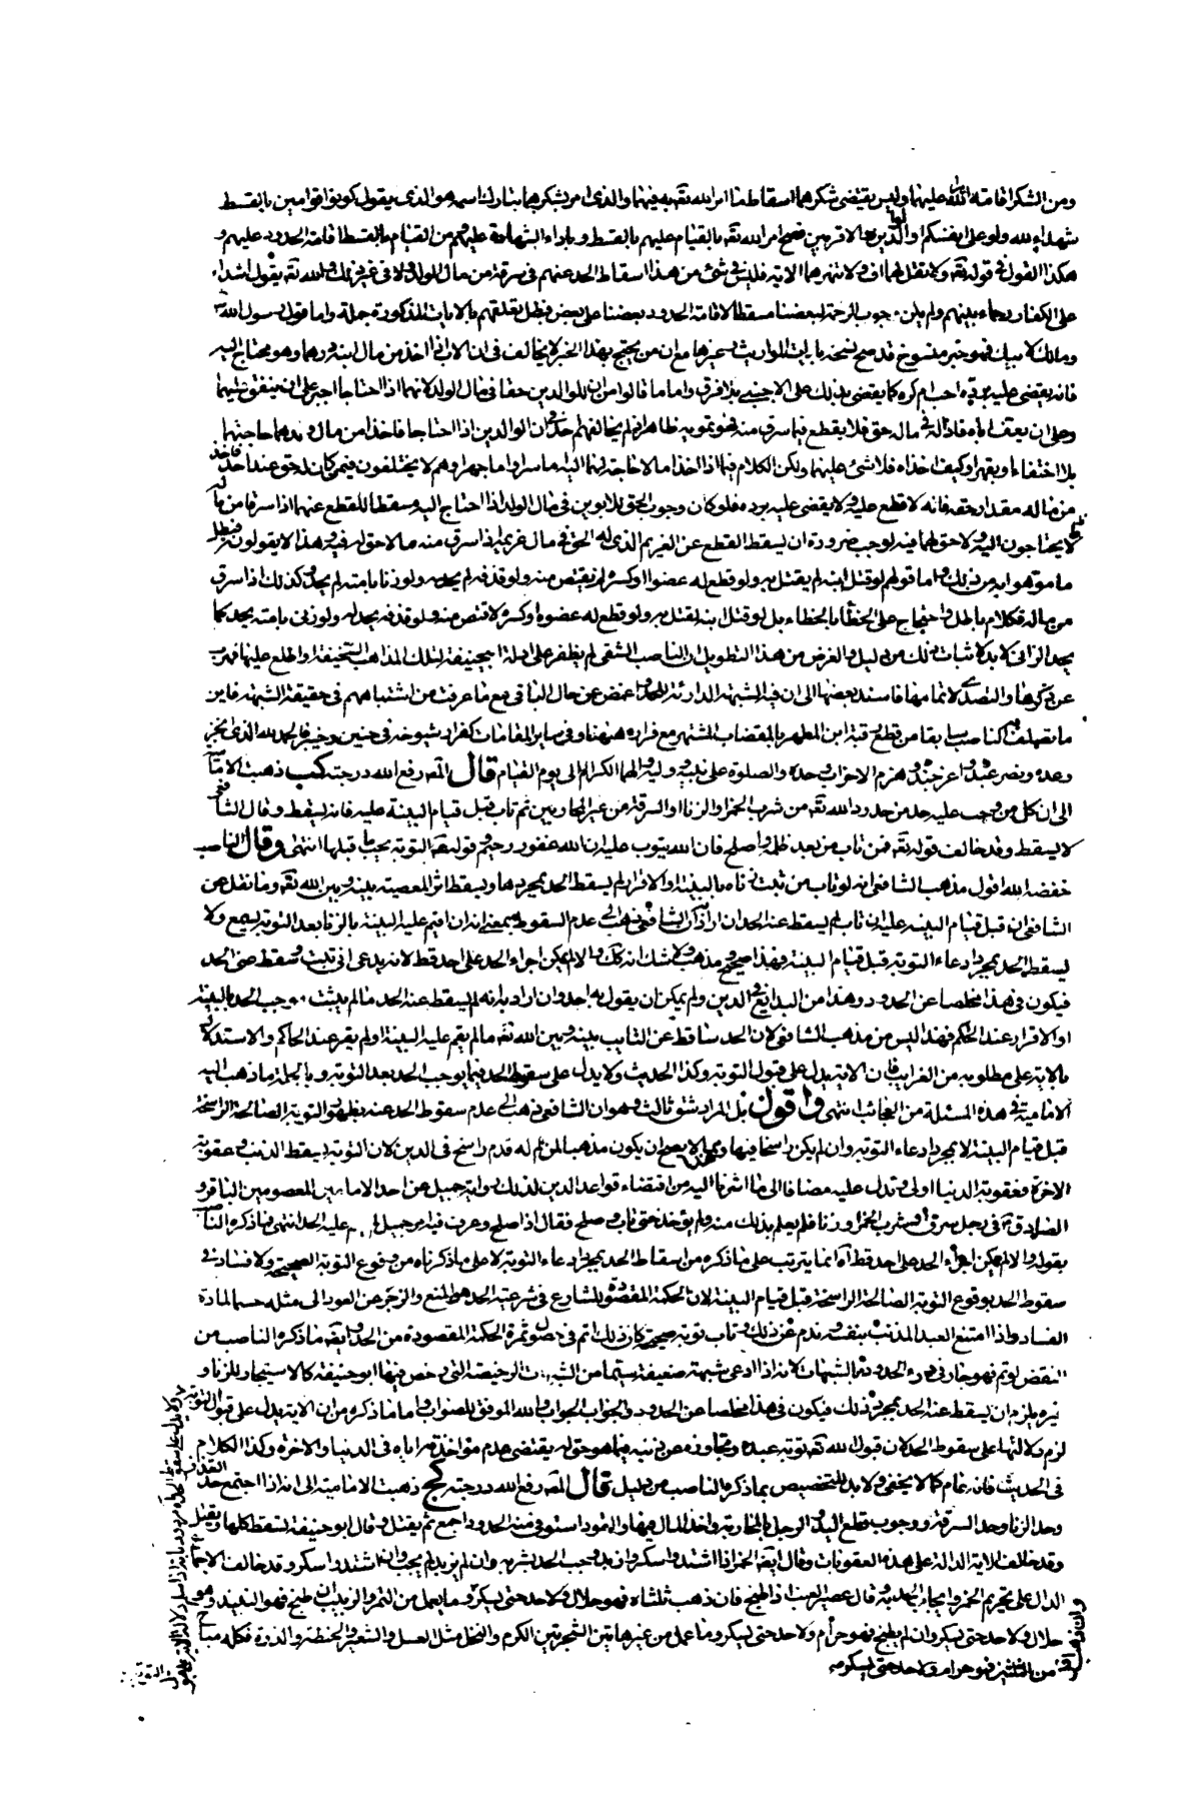 ومن الشكر اقامة امر الله عليهما وليس يقتضى شكرهما اسقاط ما امر الله تعه به فيهما والذى امر بشكرهما تبارك اسمه هو الذى يقول كونوا قوامين بالقسط
شهداء لله ولو على انفسكم او الوالدين والاقربين فصح امر الله تعه بالقيام عليهم بالقسط وباداء الشهادة عليهم ومن القيام بالقسط اقامة الحدود عليهم و
هكذا القول فى قوله تعه ولا تقل لهما اف ولا تنهرهما الاية فليس فى شئ من هذا اسقاط الحد عنهم فى سرقة من مال الولد ولا فى غير ذلك والله تعه يقول اشداء
على الكفار رحماء بينهم ولم يكن وجوب الرحمة لبعضنا مسقطا لاقامة الحدود بعضنا على بعض فبطل تعلقهم بالايات المذكورة جملة واما قول رسول الله ص انت
ومالك لابيك فهو خبر منسوخ قد صح نسخه بايات المواريث وغيرها مع ان من يحتج بهذا الخبر لا يخالف فى ان الاب اذا اخذ من مال ابنه درهما وهو محتاج اليه
فانه يقضى عليه برده احب ام كره كما يقضى بذلك على الاجنبى بلا فرق واما ما قالوا من ان للوالدين حقا فى مال الولد لانهما اذا احتاجا اجبر على ان ينفق عليهما
وعلى ان يعف اباه فاذا له فى ماله حق فلا يقطع فيما سرق منه فهو تمويه ظاهر انه لم يخالفهم احد فى ان الوالدين اذا احتاجا فاخذا من مال ولدهما حاجتهما
بلا اختفاء او بقهر او كيف اخذاه فلا شئ عليهما ولكن الكلام فيما اذا اخذا ما لا حاجة لهما اليه اما سرا واما جهرا وهم لا يختلفون فيمن كان له حق عند احد فاخذ
من ماله مقدار حقه فانه لا قطع عليه ولا يقضى عليه برده فلو كان وجوب الحق للابوين فى مال الولد اذا احتاج اليه مسقطا للقطع عنهما اذا سرقا من ماله
ما لا يحتاجون اليه ولا حق لهما فيه لوجب ضرورة ان يسقط القطع عن الغريم الذى له الحق فى مال غريمه اذا سرق منه ما لا حق له فيه وهذا لا يقولونه فبطل
ما موهوا به من ذلك واما قولهم لو قتل ابنه لم يقتل به ولو قطع له عضوا او كسره لم يقتص منه ولو قذفه لم يحد له ولو زنا بامته لم يحد وكذلك اذا سرق
من ماله فكلام باطل واحتجاج على الخطأ بالخطاء بل لو قتل ابنه لقتل به ولو قطع له عضوه او كسره لاقتص منه ولو قذفه يحد له ولو زنى بامته يحد كما
يحد الزانى لابد لاثبات ذلك من دليل والغرض من هذا التطويل ان الناصب الشقى لم يظفر على ادلة ابيحنيفة لتلك المذاهب السخيفة او اطلع عليها فهرب
عن ذكرها والتصدى لاتمامها فاسند بعضها الى ان فيه الشبهة الدارئة للحد واغمض عن حال الباقى مع ما عرفت من اشتباههم فى حقيقة الشبهة فاين
ما تصلف به الناصب سابقا من قطع رقبة ابن المطهر بالمقضاب المشتهر مع فراره ههنا وفى ساير المقامات كفرار شيوخه فى حنين وخيبر فالحمد لله الذى انجز
وعده ونصر عبده واعز جنده وهزم الاحزاب وحده والصلوة على نبيه ووليه والهما الكرام الى يوم القيام قال المصه رفع الله درجته كب ذهبت الامامية
الى ان كل من وجب عليه حد من حدود الله تعه من شرب الخمر او الزنا او السرقة من غير المحاربين ثم تاب قبل قيام البينة عليه فانه يسقط وقال الشافعى
لا يسقط وقد خالف قوله تعه فمن تاب من بعد ظلمه واصلح فان الله يتوب عليه ان الله غفور رحيم وقوله عه التوبة يجب ما قبلها انتهى وقال الناصب
خفضه الله اقول مذهب الشافعى انه لو تاب من ثبت زناه بالبينة او الاقرار لم يسقط الحد بمجردها ويسقط اثر المعصية بينه وبين الله تعه وما نقل عن
الشافعى ان قبل قيام البينة عليه ان تاب لم يسقط عنه الحد ان اراد ذكر الشافعى ذهب الى عدم السقوط بمعنى انه ان اقيم عليه البينة بالزنا بعد التوبة يسمع ولا
يسقط الحد بمجرد ادعاء التوبة قبل قيام البينة فهذا صحيح ومذهبه ولا شك انه كك والا لم يمكن اجراء الحد على احد قط لانه يدعى انى تبت وسقط عنى الحد
فيكون فى هذا مخلصا عن الحدود وهذا من البدايع فى الدين ولم يمكن ان يقول به احد وان اراد بانه لم يسقط عنه الحد ما لم يثبت وجب الحد بالبينة
او الاقرار عند الحاكم فهذا ليس من مذهب الشافعى لان الحد ساقط عن التايب بينه وبين الله تعه ما لم يقم عليه البينة او لم يقر عند الحاكم والاستدلال
بالاية على مطلوبه من الغرايب فان الاية يدل على قبول التوبة وكذا الحديث ولا يدل على سقوط الحد فيما يوجب الحد بعد التوبة وبالجملة ما ذهب اليه
الامامية فى هذه المسئلة من العجائب انتهى واقول بل المراد شق ثالث وهو ان الشافعى ذهب الى عدم سقوط الحد عنه بظهور التوبة الصالحة الراسخة
قبل قيام البينة لا بمجرد ادعاء التوبة وان لم يكن راسخا فيها وهذا لا يصح ان يكون مذهبا لمن له قدم راسخ فى الدين لان التوبة يسقط الذنب وعقوبة
الاخرة فعقوبة الدنيا اولى ويدل عليه مضافا الى ما اشرنا اليه من اقتضاء قواعد الدين لذلك رواية جميل عن احد الامامين المعصومين الباقر و
الصادق ع فى رجل سرق او شرب الخمر او زنا فلم يعلم بذلك منه ولم يؤخذ حتى تاب وصلح فقال اذا صلح وعرف منه امر جميل لم يقم عليه الحد انتهى فما ذكره الناصب
بقوله والا لم يمكن اجراء الحد على احد قط آه انما يترتب على ما ذكره من اسقاط الحد بمجرد ادعاء التوبة لا على ما ذكرناه من وقوع التوبة الصحيحة ولا فساد فى
سقوط الحد بوقوع التوبة الصالحة الراسخة قبل قيام البينة لان الحكمة المقصودة للشارع فى شرعية الحد هو المنع والزجر عن العود الى مثله حسما لمادة
الفساد واذا امتنع العبد المذنب بنفسه وندم عن ذلك وتاب توبة صحيحة كان ذلك اتم فى حصول ثمرة الحكمة المقصودة من الحد وايضه ما ذكره الناصب من
النقض لو تم فهو جار فى درء الحدود بالشبهات لانه اذا ادعى شبهة ضعيفة سيما من الشبهات الرخيصة التى رخص فيها ابو حنيفة كالاستيجار للزنا و
غيره يلزم ان يسقط عنه الحد بمجرد ذلك فيكون فى هذا مخلصا عن الحدود والجواب الجواب والله الموفق للصواب واما ما ذكره من ان الاية يدل على قبول التوبة
لزم دلالتها على سقوط الحد لان قبول الله تعه توبة عبده وتجاوزه عن ذنبه فيما هو حق له يقتضى عدم مؤاخذته اياه فى الدنيا والاخرة وكذا الكلام
فى الحديث فانه عام كما لا يخفى ولابد للتخصيص بما ذكره الناصب من دليل قال المصه رفع الله درجته كج ذهبت الامامية الى انه اذا اجتمع حد القذف
وحد الزنا وحد السرقة ووجوب قطع اليد والرجل بالمحاربة واخذ المال فيها والقود استوفى منه الحدود اجمع ثم يقتل وقال ابو حنيفة يسقط كلها ويقتل
وقد خالف الاية الدالة على هذه العقوبات وقال ايضه الخمر اذا اشتد واسكر وازبد وجب الحد بشربه وان لم يزبد لم يجب وان اشتد واسكر وقد خالف الاجماع
الدال على تحريم الخمر وايجاب الحد به وقال عصير العنب اذا طبخ فان ذهب ثلثاه فهو حلال ولا حد حتى يسكر وما يعمل من التمر والزبيب ان طبخ فهو النبيذ وهو
حلال ولا حد حتى يسكر وان لم يطبخ فهو حرام ولا حد حتى يسكر وما عمل من غير هاتين الشجرتين الكرم والنخل مثل العسل والشعير والحنطة والذرة فكله مباح
من الثلثين فهو حرام ولا حد حتى يسكر منه
وان ذهب اقل